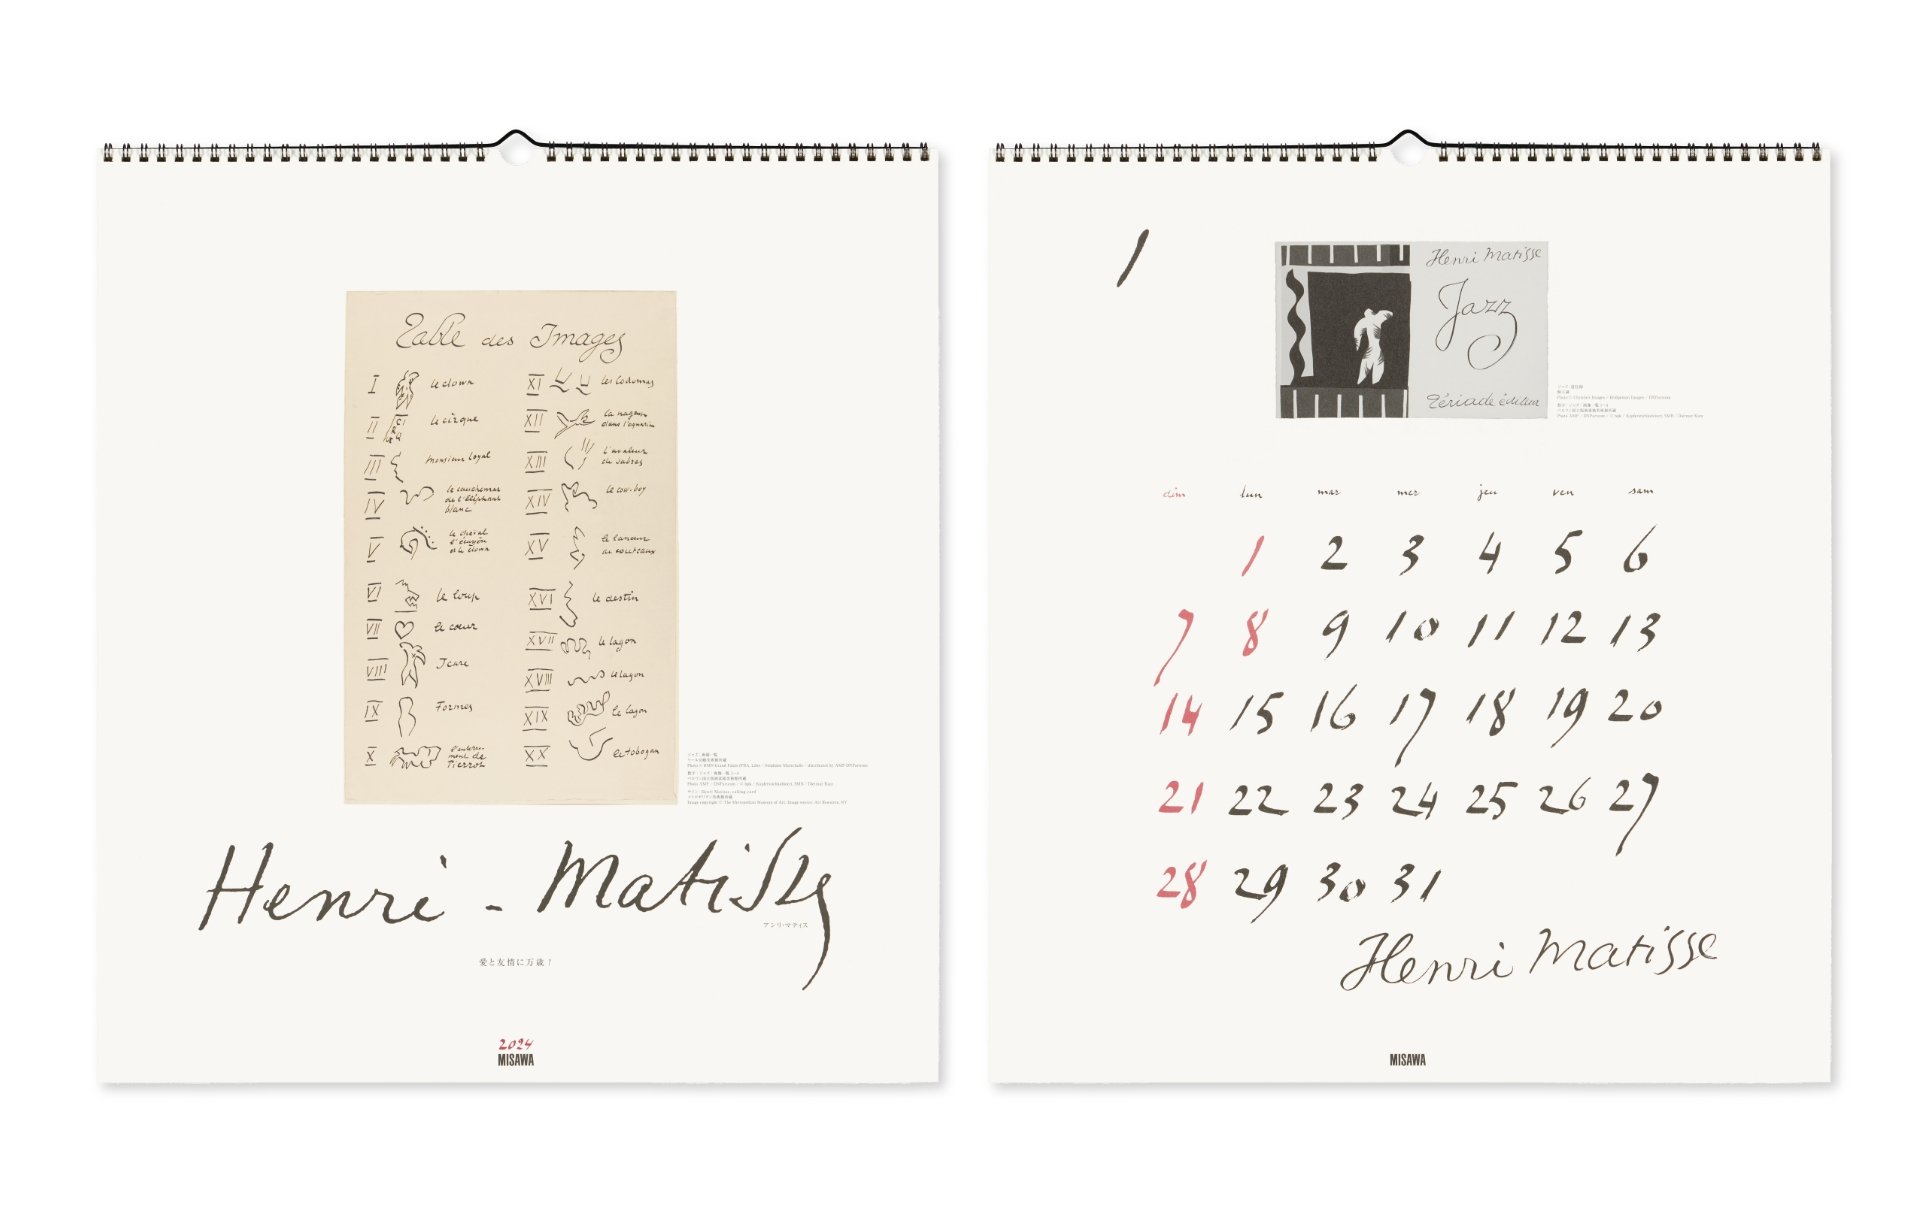 Table des Images
I le clown
II le cirque
III monsieur loyal
IV le cauchemar
de l'éléphant
blanc
V le cheval
l'écuyère
et le clown
VI le loup
VII le cœur
VIII Icare
IX Formes
X l'enterre-
ment de
Pierrot
XI les Codomas
XII la nageuse
dans l'aquarium
XIII l'avaleur
de sabres
XIV le cow-boy
XV le lanceur
de couteaux
XVI le destin
XVII le lagon
XVIII le lagon
XIX le lagon
XX le tobogan
Henri-Matisse
アンリ・マティス
愛と友情に万歳！
2024
MISAWA
1
Henri Matisse
Jazz
Tériade éditeur
dim lun mar mer jeu ven sam
1 2 3 4 5 6
7 8 9 10 11 12 13
14 15 16 17 18 19 20
21 22 23 24 25 26 27
28 29 30 31
Henri Matisse
MISAWA